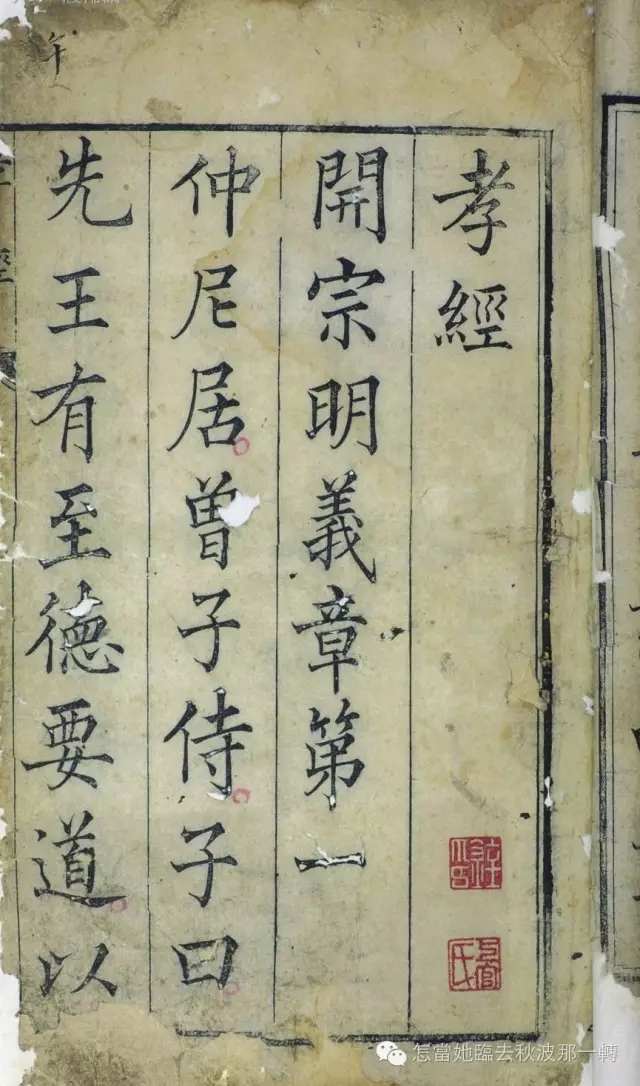 孝經
開宗明義章第一
仲尼居曾子侍子曰
先王有至德要道以
午
怎當她臨去秋波那一轉